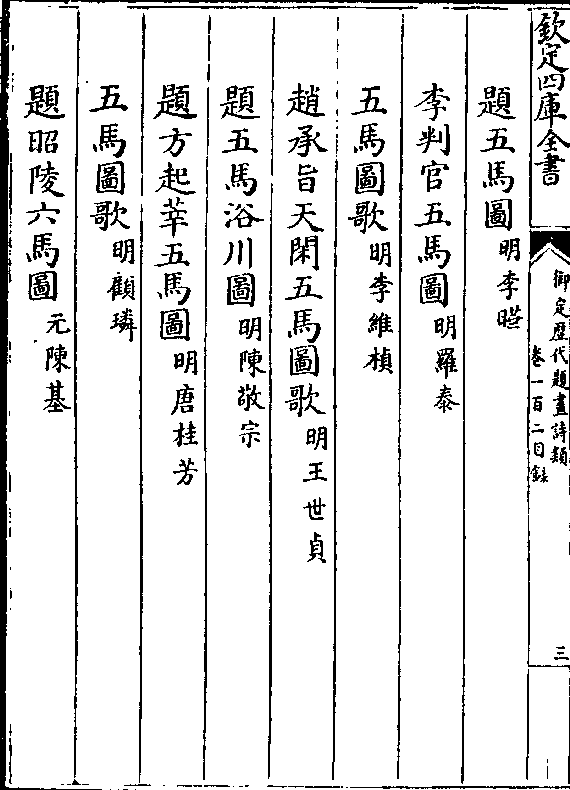 欽定四庫全書
御定歴代題畫詩類
卷一百二目錄
三
題五馬圖明李曄
李判官五馬圖明羅泰
五馬圖歌明李維楨
趙承旨天閑五馬圖歌明王世貞
題五馬浴川圖明陳敬宗
題方起莘五馬圖明唐桂芳
五馬圖歌明顧璘
題昭陵六馬圖元陳基